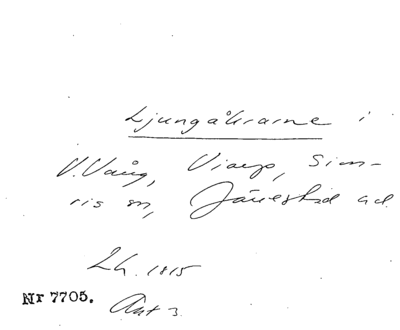 Ljungåkrarne i
V. Vång, Viarp, Sim-
ris sn, Järrestad ad.
L.h. 1815
Nr 7705. Akt 3.